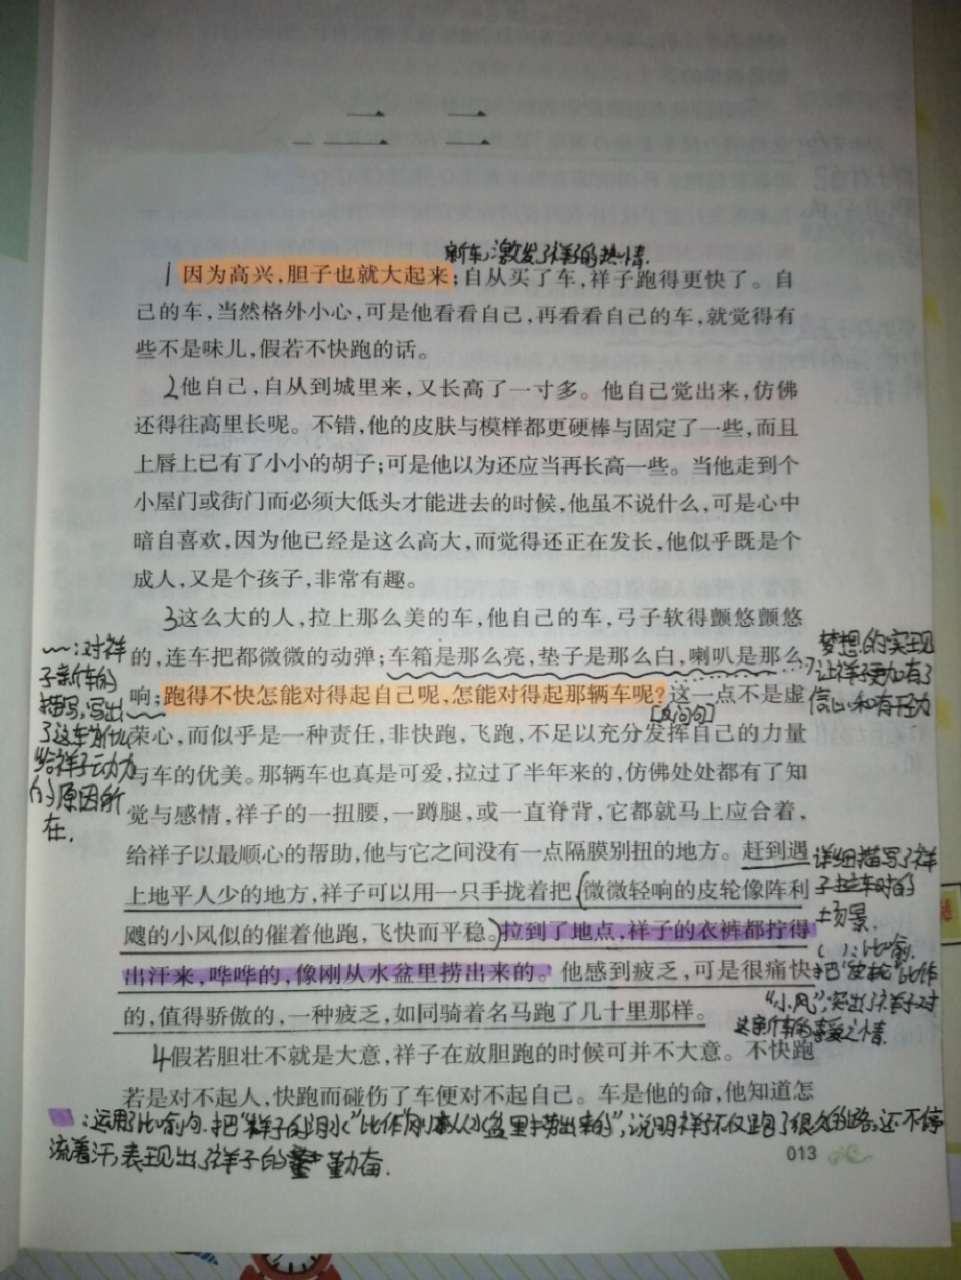 二
新车，激发了祥子的热情.
1因为高兴，胆子也就大起来；自从买了车，祥子跑得更快了。自
己的车，当然格外小心，可是他看看自己，再看看自己的车，就觉得有
些不是味儿，假若不快跑的话。
2他自己，自从到城里来，又长高了一寸多。他自己觉出来，仿佛
还得往高里长呢。不错，他的皮肤与模样都更硬棒与固定了一些，而且
上唇上已有了小小的胡子；可是他以为还应当再长高一些。当他走到个
小屋门或街门而必须大低头才能进去的时候，他虽不说什么，可是心中
暗自喜欢，因为他已经是这么高大，而觉得还正在发长，他似乎既是个
成人，又是个孩子，非常有趣。
3这么大的人，拉上那么美的车，他自己的车，弓子软得颤悠颤悠
的，连车把都微微的动弹；车箱是那么亮，垫子是那么白，喇叭是那么
响；跑得不快怎能对得起自己呢，怎能对得起那辆车呢？这一点不是虚
[反问句]
荣心，而似乎是一种责任，非快跑，飞跑，不足以充分发挥自己的力量
与车的优美。那辆车也真是可爱，拉过了半年来的，仿佛处处都有了知
觉与感情，祥子的一扭腰，一蹲腿，或一直脊背，它都就马上应合着，
给祥子以最顺心的帮助，他与它之间没有一点隔膜别扭的地方。赶到遇
上地平人少的地方，祥子可以用一只手拢着把(微微轻响的皮轮像阵利
飕的小风似的催着他跑，飞快而平稳。)拉到了地点，祥子的衣裤都拧得
出汗来，哗哗的，像刚从水盆里捞出来的。他感到疲乏，可是很痛快
的，值得骄傲的，一种疲乏，如同骑着名马跑了几十里那样。
4假若胆壮不就是大意，祥子在放胆跑的时候可并不大意。不快跑
若是对不起人，快跑而碰伤了车便对不起自己。车是他的命，他知道怎
：对祥
子新车的
描写，写出
了这车为什么
给祥子动力
的原因所
在.
梦想的实现
让祥子更加有了
信心和有干劲
详细描写了祥
子拉车时的
场景.
( )：比喻.
把"皮轮"比作
"小风"，突出了祥子对
这新车的喜爱之情.
：运用了比喻句.把"祥子的汗水"比作"刚从水盆里捞出来的"，说明祥子不仅跑了很久的路，还不停
流着汗，表现出了祥子的勤奋.
013